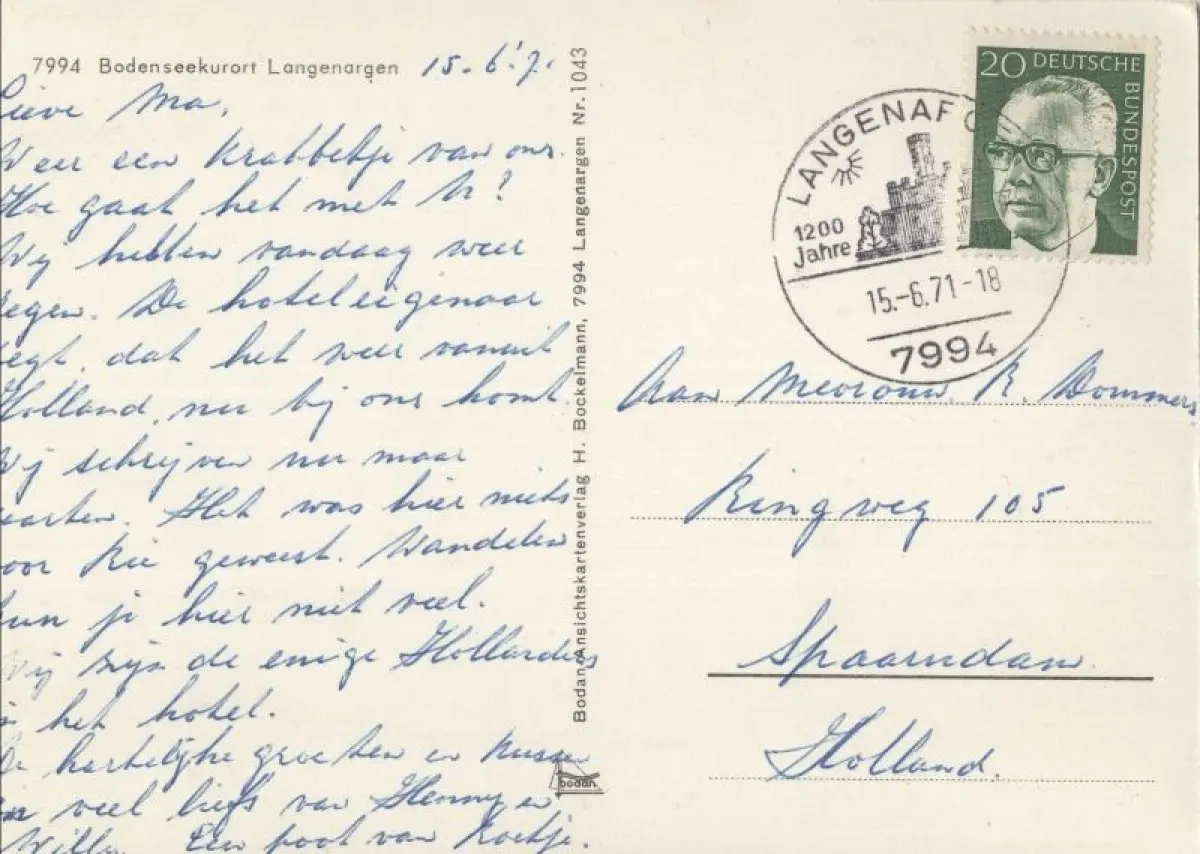 7994 Bodenseekurort Langenargen 15.6.'7.
Lieve Ma,
Weer een krabbeltje van ons.
Hoe gaat het met U?
Wij hebben vandaag weer
regen. De hoteleigenaar
zegt, dat het weer vanuit
Holland nu bij ons komt.
Wij schrijven nu maar
kaarten. Het was hier niets
voor Rie geweest. Wandelen
kun je hier niet veel.
Wij zijn de enige Hollanders
in het hotel.
De hartelijke groeten en kussen
en veel liefs van Henny en
Willy. Een poot van
Bodan-Ansichtskartenverlag H. Bockelmann, 7994 Langenargen Nr. 1043
bodan
20 DEUTSCHE
BUNDESPOST
LANGENAR
1200
Jahre
15.-6.71-18
7994
Aan Mevrouw R. Dommers
Ringweg 105
Spaarndam
Holland.